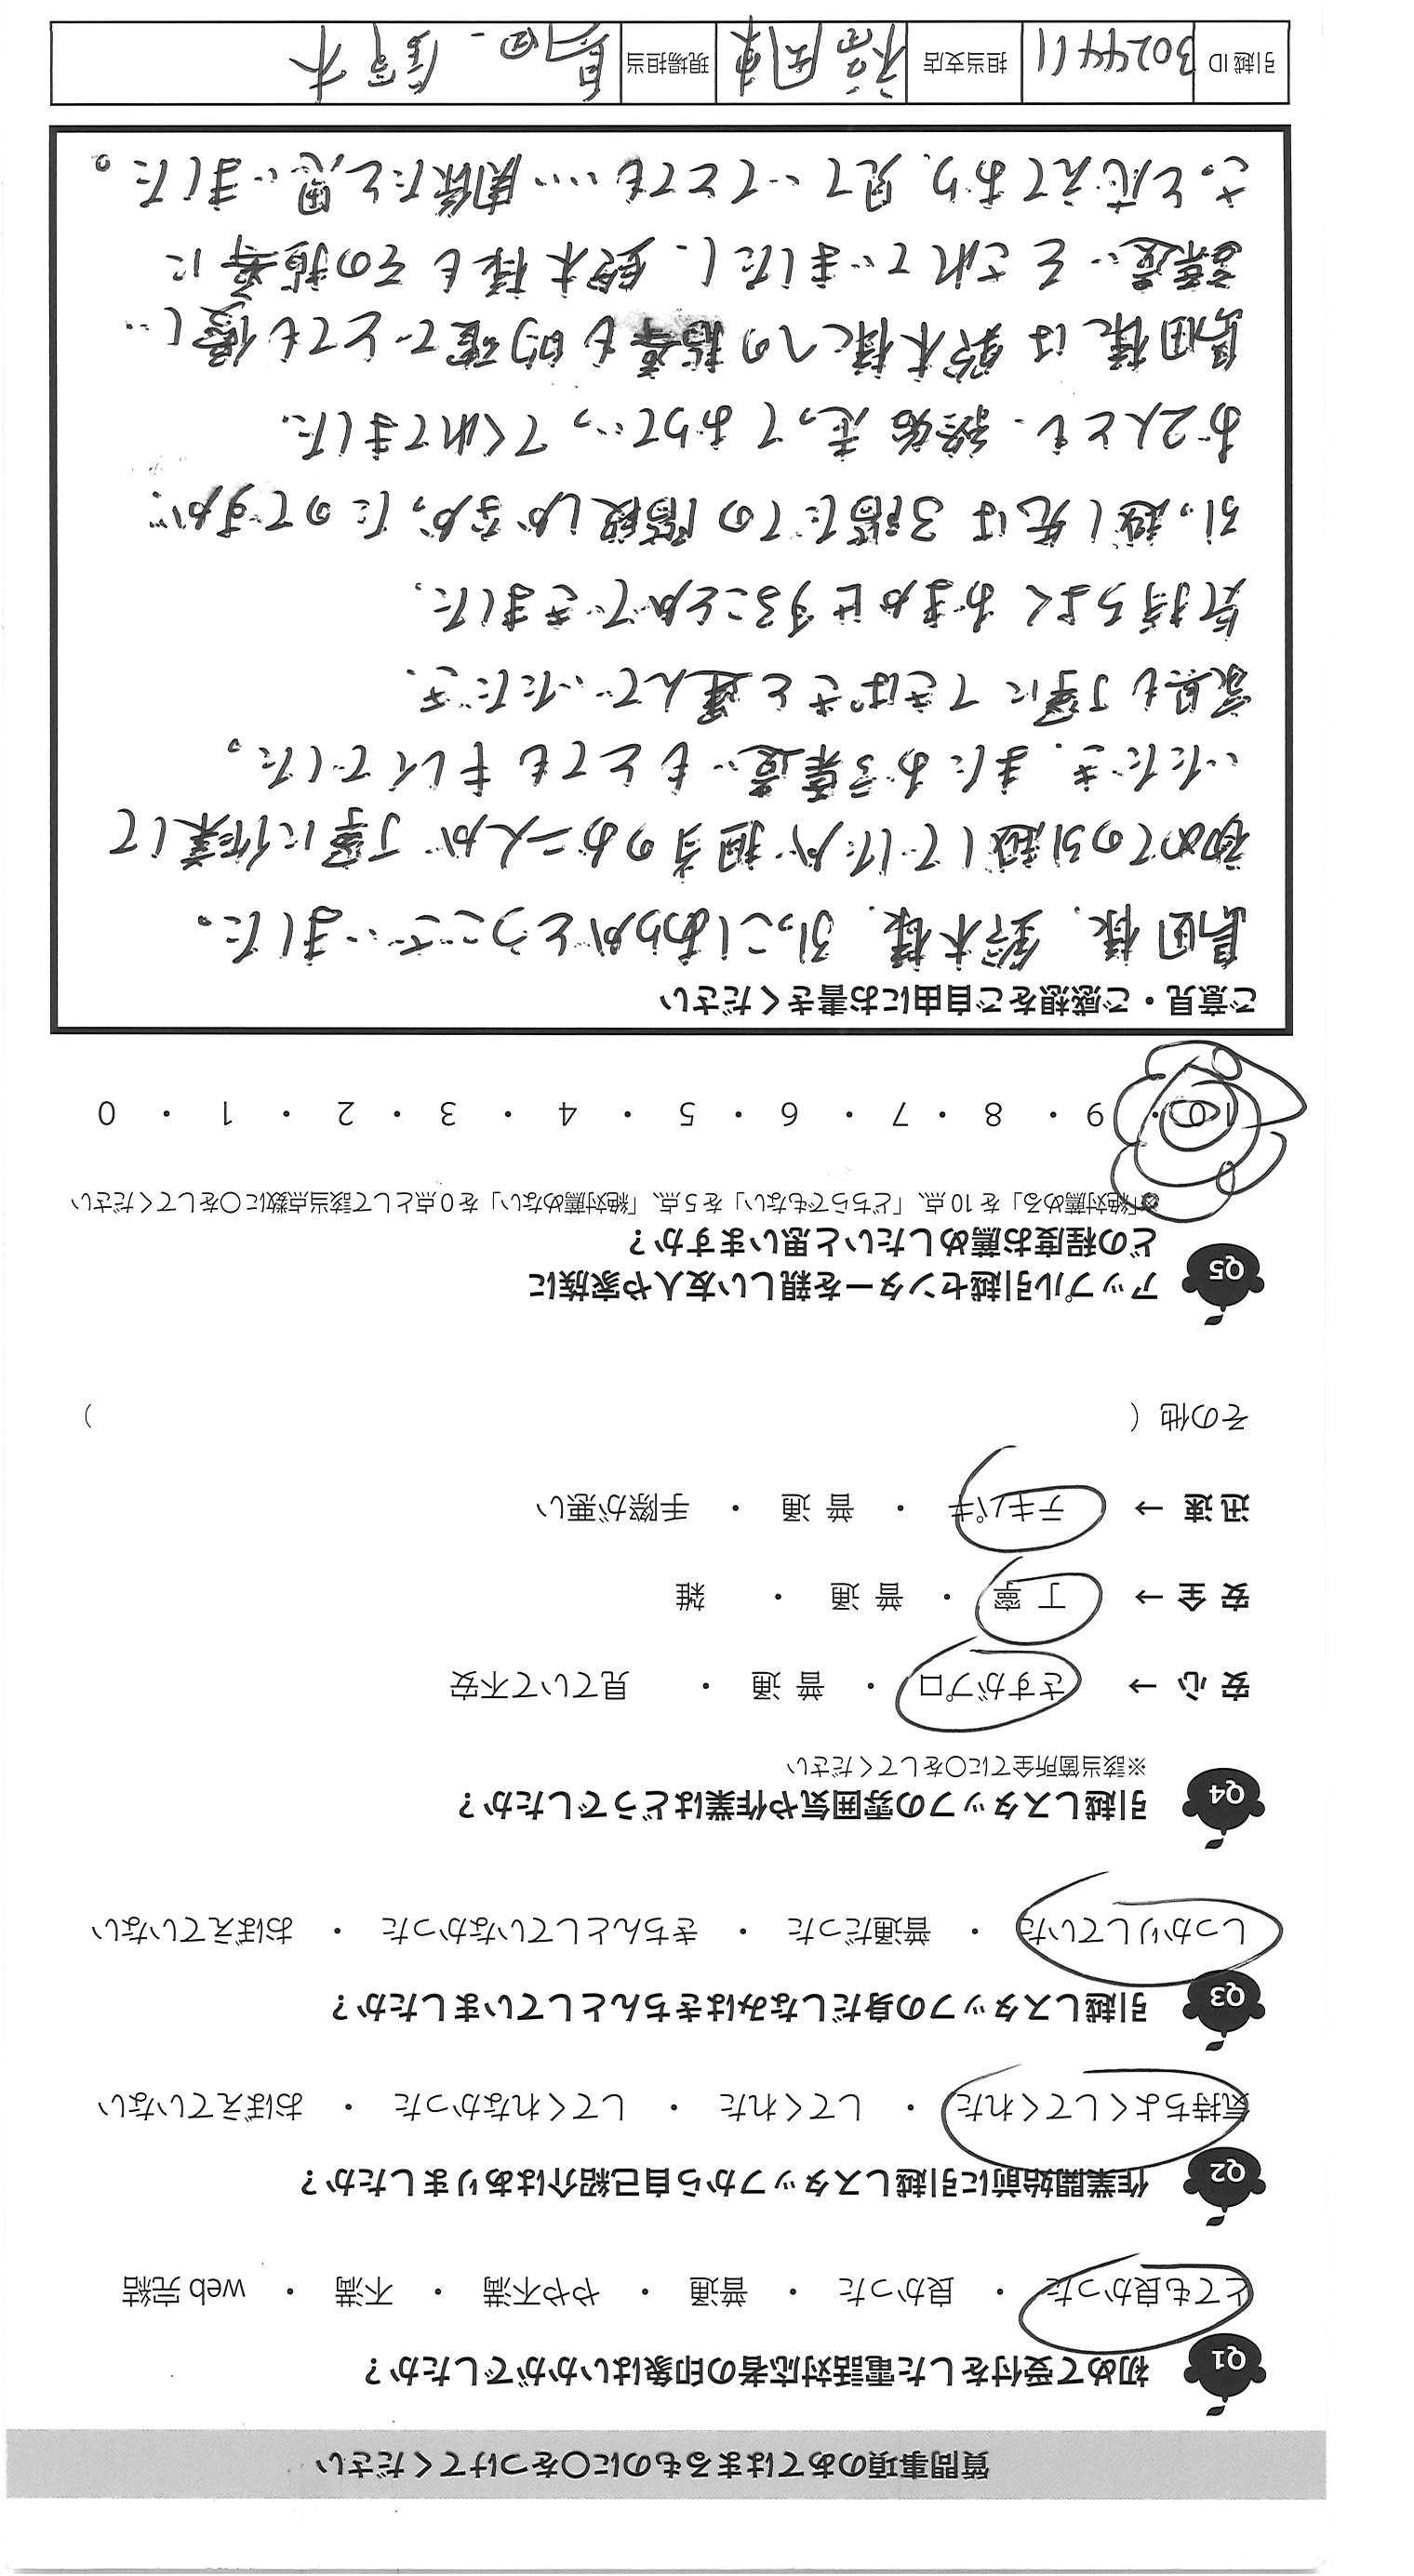 質問事項のあてはまるものに○をつけてください
Q1 初めて受付をした電話対応者の印象はいかがでしたか？
とても良かった ・ 良かった ・ 普通 ・ やや不満 ・ 不満 ・ web 完結
Q2 作業開始前に引越しスタッフから自己紹介はありましたか？
気持ちよくしてくれた ・ してくれた ・ してくれなかった ・ おぼえていない
Q3 引越しスタッフの身だしなみはきちんとしていましたか？
しっかりしていた ・ 普通だった ・ きちんとしていなかった ・ おぼえていない
Q4 引越しスタッフの雰囲気や作業はどうでしたか？
※該当箇所全てに○をしてください
安 心 → さすがプロ ・ 普 通 ・ 見ていて不安
安 全 → 丁 寧 ・ 普 通 ・ 雑
迅 速 → テキパキ ・ 普 通 ・ 手際が悪い
その他（ ）
Q5 アップル引越センターを親しい友人や家族に
どの程度お薦めしたいと思いますか？
※「絶対薦める」を 10 点、「どちらでもない」を 5 点、「絶対薦めない」を 0 点として該当点数に○をしてください
10 ・ 9 ・ 8 ・ 7 ・ 6 ・ 5 ・ 4 ・ 3 ・ 2 ・ 1 ・ 0
ご意見・ご感想をご自由にお書きください
島田様、鈴木様、引っこしありがとうございました。
初めての引越しでしたが担当のお二人が丁寧に作業して
いただき、またお言葉遣いもとてもキレイでした。
家具も丁寧にてきぱきと運んでいただき、
気持ちよくおまかせすることができました。
引っ越し先は3階だての階段しかなかったのですが、
お2人とも、終始走っておりていってくれてました。
島田様は鈴木様への指導も的確でとても優しい
言葉遣いをされていましたし、鈴木様もその指導に
さっと応えており、見ていてとてもいい関係だと思いました。
引越 ID 3024411 担当支店 福岡東 現場担当 島田、鈴木